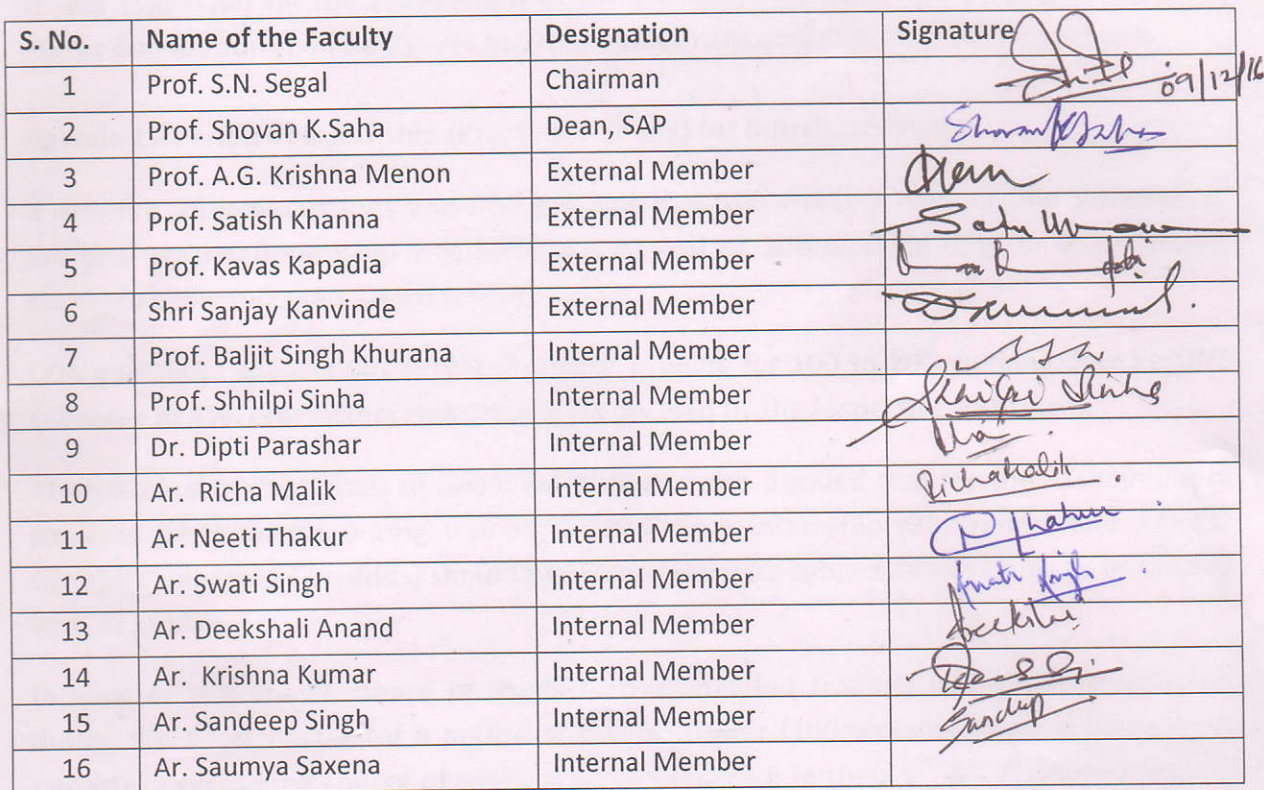 S. No. Name of the Faculty Designation Signature
1 Prof. S.N. Segal Chairman 09/12/16
2 Prof. Shovan K.Saha Dean, SAP
3 Prof. A.G. Krishna Menon External Member
4 Prof. Satish Khanna External Member
5 Prof. Kavas Kapadia External Member
6 Shri Sanjay Kanvinde External Member
7 Prof. Baljit Singh Khurana Internal Member
8 Prof. Shhilpi Sinha Internal Member Shhilpi Sinha
9 Dr. Dipti Parashar Internal Member
10 Ar. Richa Malik Internal Member Richa Malik
11 Ar. Neeti Thakur Internal Member Thakur
12 Ar. Swati Singh Internal Member Swati Singh
13 Ar. Deekshali Anand Internal Member
14 Ar. Krishna Kumar Internal Member
15 Ar. Sandeep Singh Internal Member Sandeep
16 Ar. Saumya Saxena Internal Member